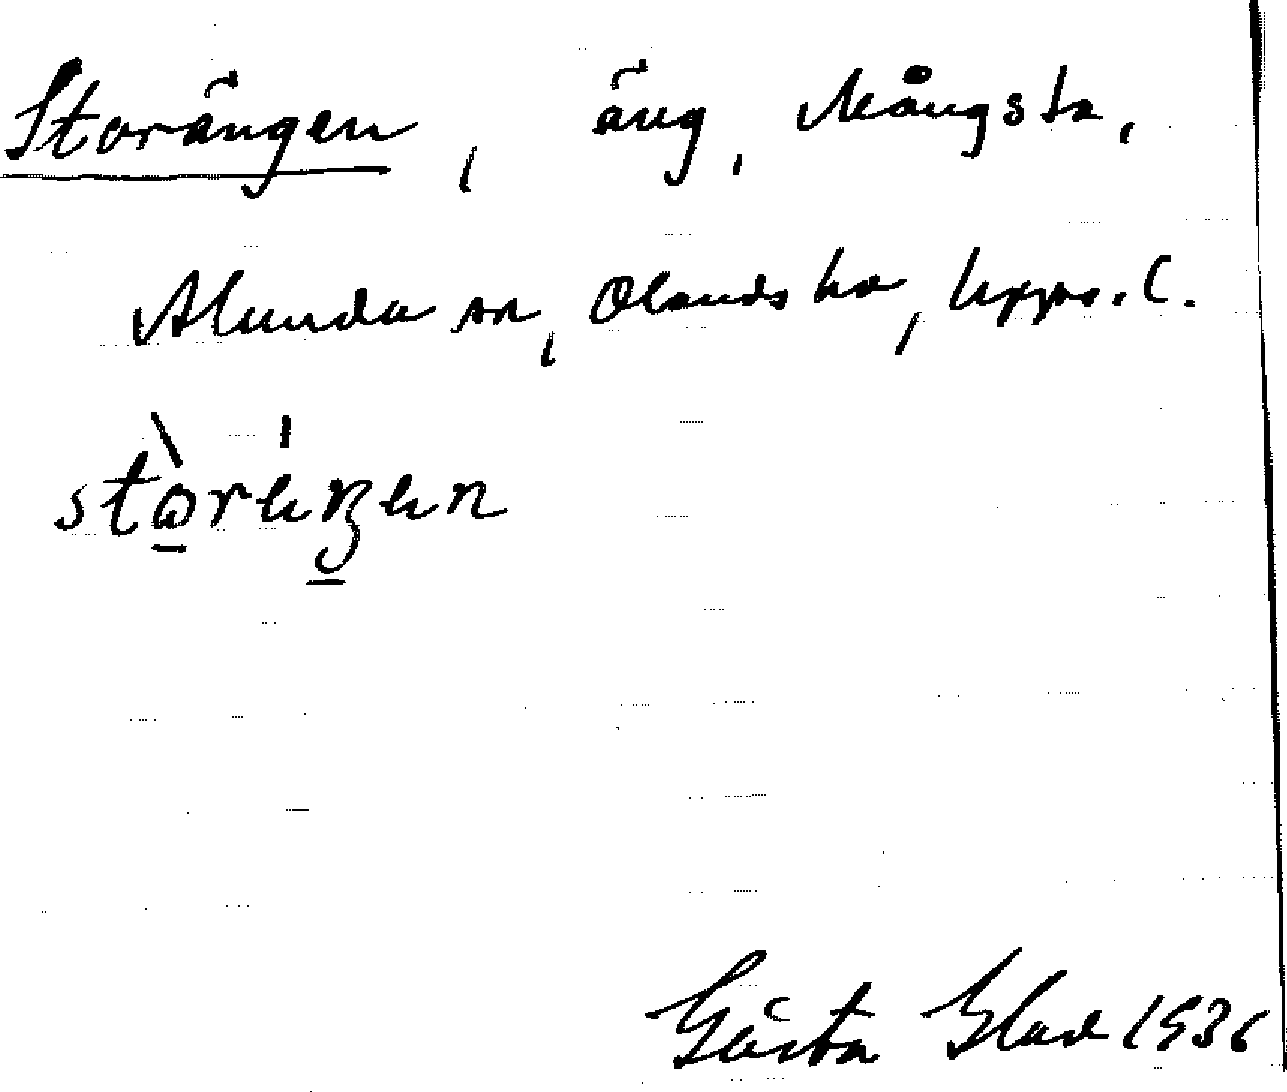 Storängen, äng, Mångsta,
Alunda sn, Olands hd, Upps. l.
Gösta Blad 1936